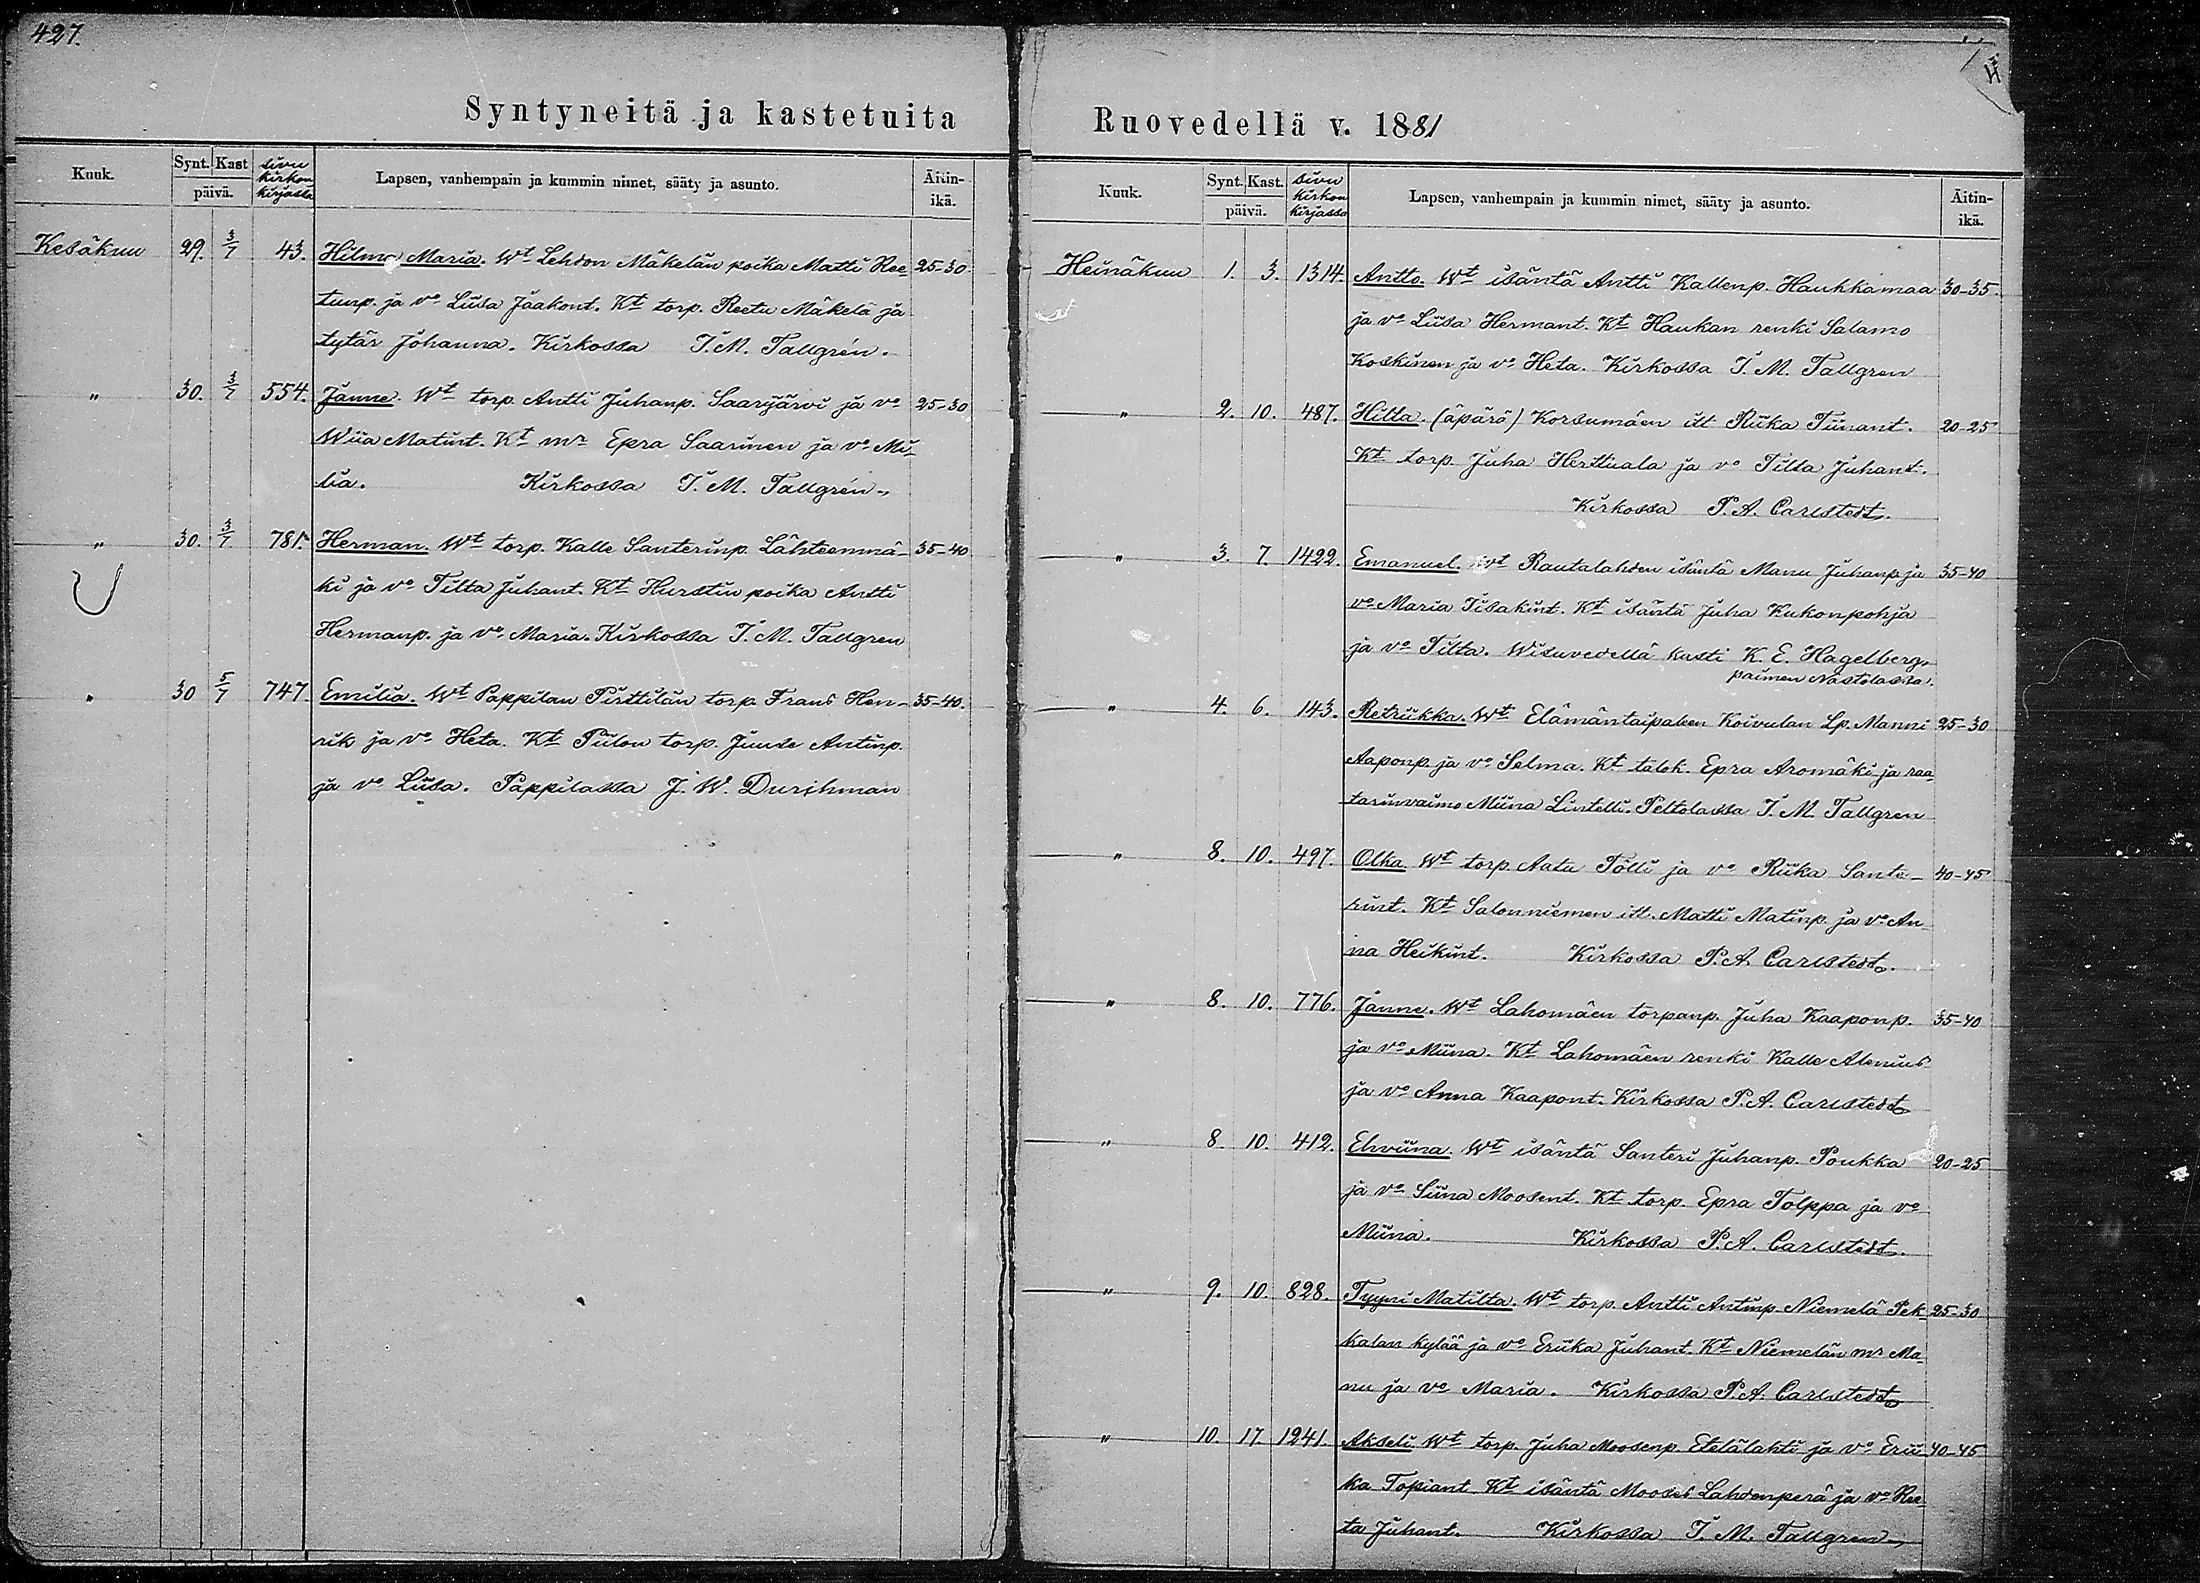 427.
Syntyneitä ja kastetuita
Kuuk. Synt. Kast päivä. sivu kirkon kirjassa Lapsen, vanhempain ja kummin nimet, sääty ja asunto. Äitin-ikä.
Kesäkuu 29. 3/7 43. Hilma Maria. Wt Lehdon Mäkelän poika Matti Ree 25-30.
tunp. ja vo Liisa Jaakont. Kt torp. Reetu Mäkelä ja
tytär Johanna. Kirkossa I. M. Tallgrén.
" 30. 3/7 554. Janne. Wt torp. Antti Juhanp. Saarijärvi ja vo 25-30
Wiia Matint. Kt mr Epra Saarinen ja vo Mi-
lia. Kirkossa I. M. Tallgrén.
" 30. 3/7 781. Herman. Wt torp. Kalle Santerinp. Lähteenmä- 35-40
ki ja vo Tilta Juhant. Kt Hurstin poika Antti
Hermanp. ja vo Maria. Kirkossa I. M. Tallgren
" 30 5/7 747. Emilia. Wt Pappilan Pirttilän torp. Frans Hen- 35-40.
rik ja vo Heta. Kt Piilon torp. Juuse Antinp.
ja vo Liisa. Pappilassa J. W. Durchman
Ruovedellä v. 1881
Kuuk. Synt. Kast. päivä. sivu kirkon kirjassa Lapsen, vanhempain ja kummin nimet, sääty ja asunto. Äitin-ikä.
Heinäkuu 1. 3. 1314. Antto. Wt isäntä Antti Kallenp. Haukkamaa 30-35.
ja vo Liisa Hermant. Kt Haukan renki Salamo
Koskinen ja vo Heta. Kirkossa I. M. Tallgren
" 2. 10. 487. Hilta. (äpärä) Korsumäen itt Riika Tiinant. 20-25
Kt torp. Juha Herttuala ja vo Tilta Juhant.
Kirkossa P. A. Carlstedt.
" 3. 7. 1422. Emanuel. Wt Rautalahden isäntä Manu Juhanp. ja 35-40
vo Maria Iisakint. Kt isäntä Juha Kukonpohja
ja vo Tilta. Wisuvedellä kasti K. E. Hagelberg.
paimen Nastolassa.
" 4. 6. 143. Retriikka. Wt Elämäntaipaleen Koivulan Lp. Manni 25-30
Aaponp. ja vo Selma. Kt talok. Epra Aromäki ja raa-
tarinvaimo Miina Lintelli. Peltolassa I. M. Tallgren
" 8. 10. 497. Olka. Wt torp. Aatu Tölli ja vo Riika Sante- 40-45
rint. Kt Salonniemen itt. Matti Matinp. ja vo An-
na Heikint. Kirkossa P. A. Carlstedt.
" 8. 10. 776. Janne. Wt Lahomäen torpanp. Juha Kaaponp. 35-40
ja vo Miina. Kt Lahomäen renki Kalle Alenius
ja vo Anna Kaapont. Kirkossa P. A. Carlstedt
" 8. 10. 412. Elviina. Wt isäntä Santeri Juhanp. Poukka 20-25
ja vo Siina Moosent. Kt torp. Epra Tolppa ja vo
Miina. Kirkossa P. A. Carlstedt.
" 9. 10. 828. Tyyni Matilta. Wt torp. Antti Antinp. Niemelä Pek- 25-30
kalan kylää ja vo Eriika Juhant. Kt Niemelän mr Ma-
nu ja vo Maria. Kirkossa P. A. Carlstedt
" 10. 17. 1241. Akseli. Wt torp. Juha Moosenp. Etelälahti ja vo Erii- 40-45
ka Topiant. Kt isäntä Mooses Lahdenperä ja vo Ree-
ta Juhant. Kirkossa I. M. Tallgren